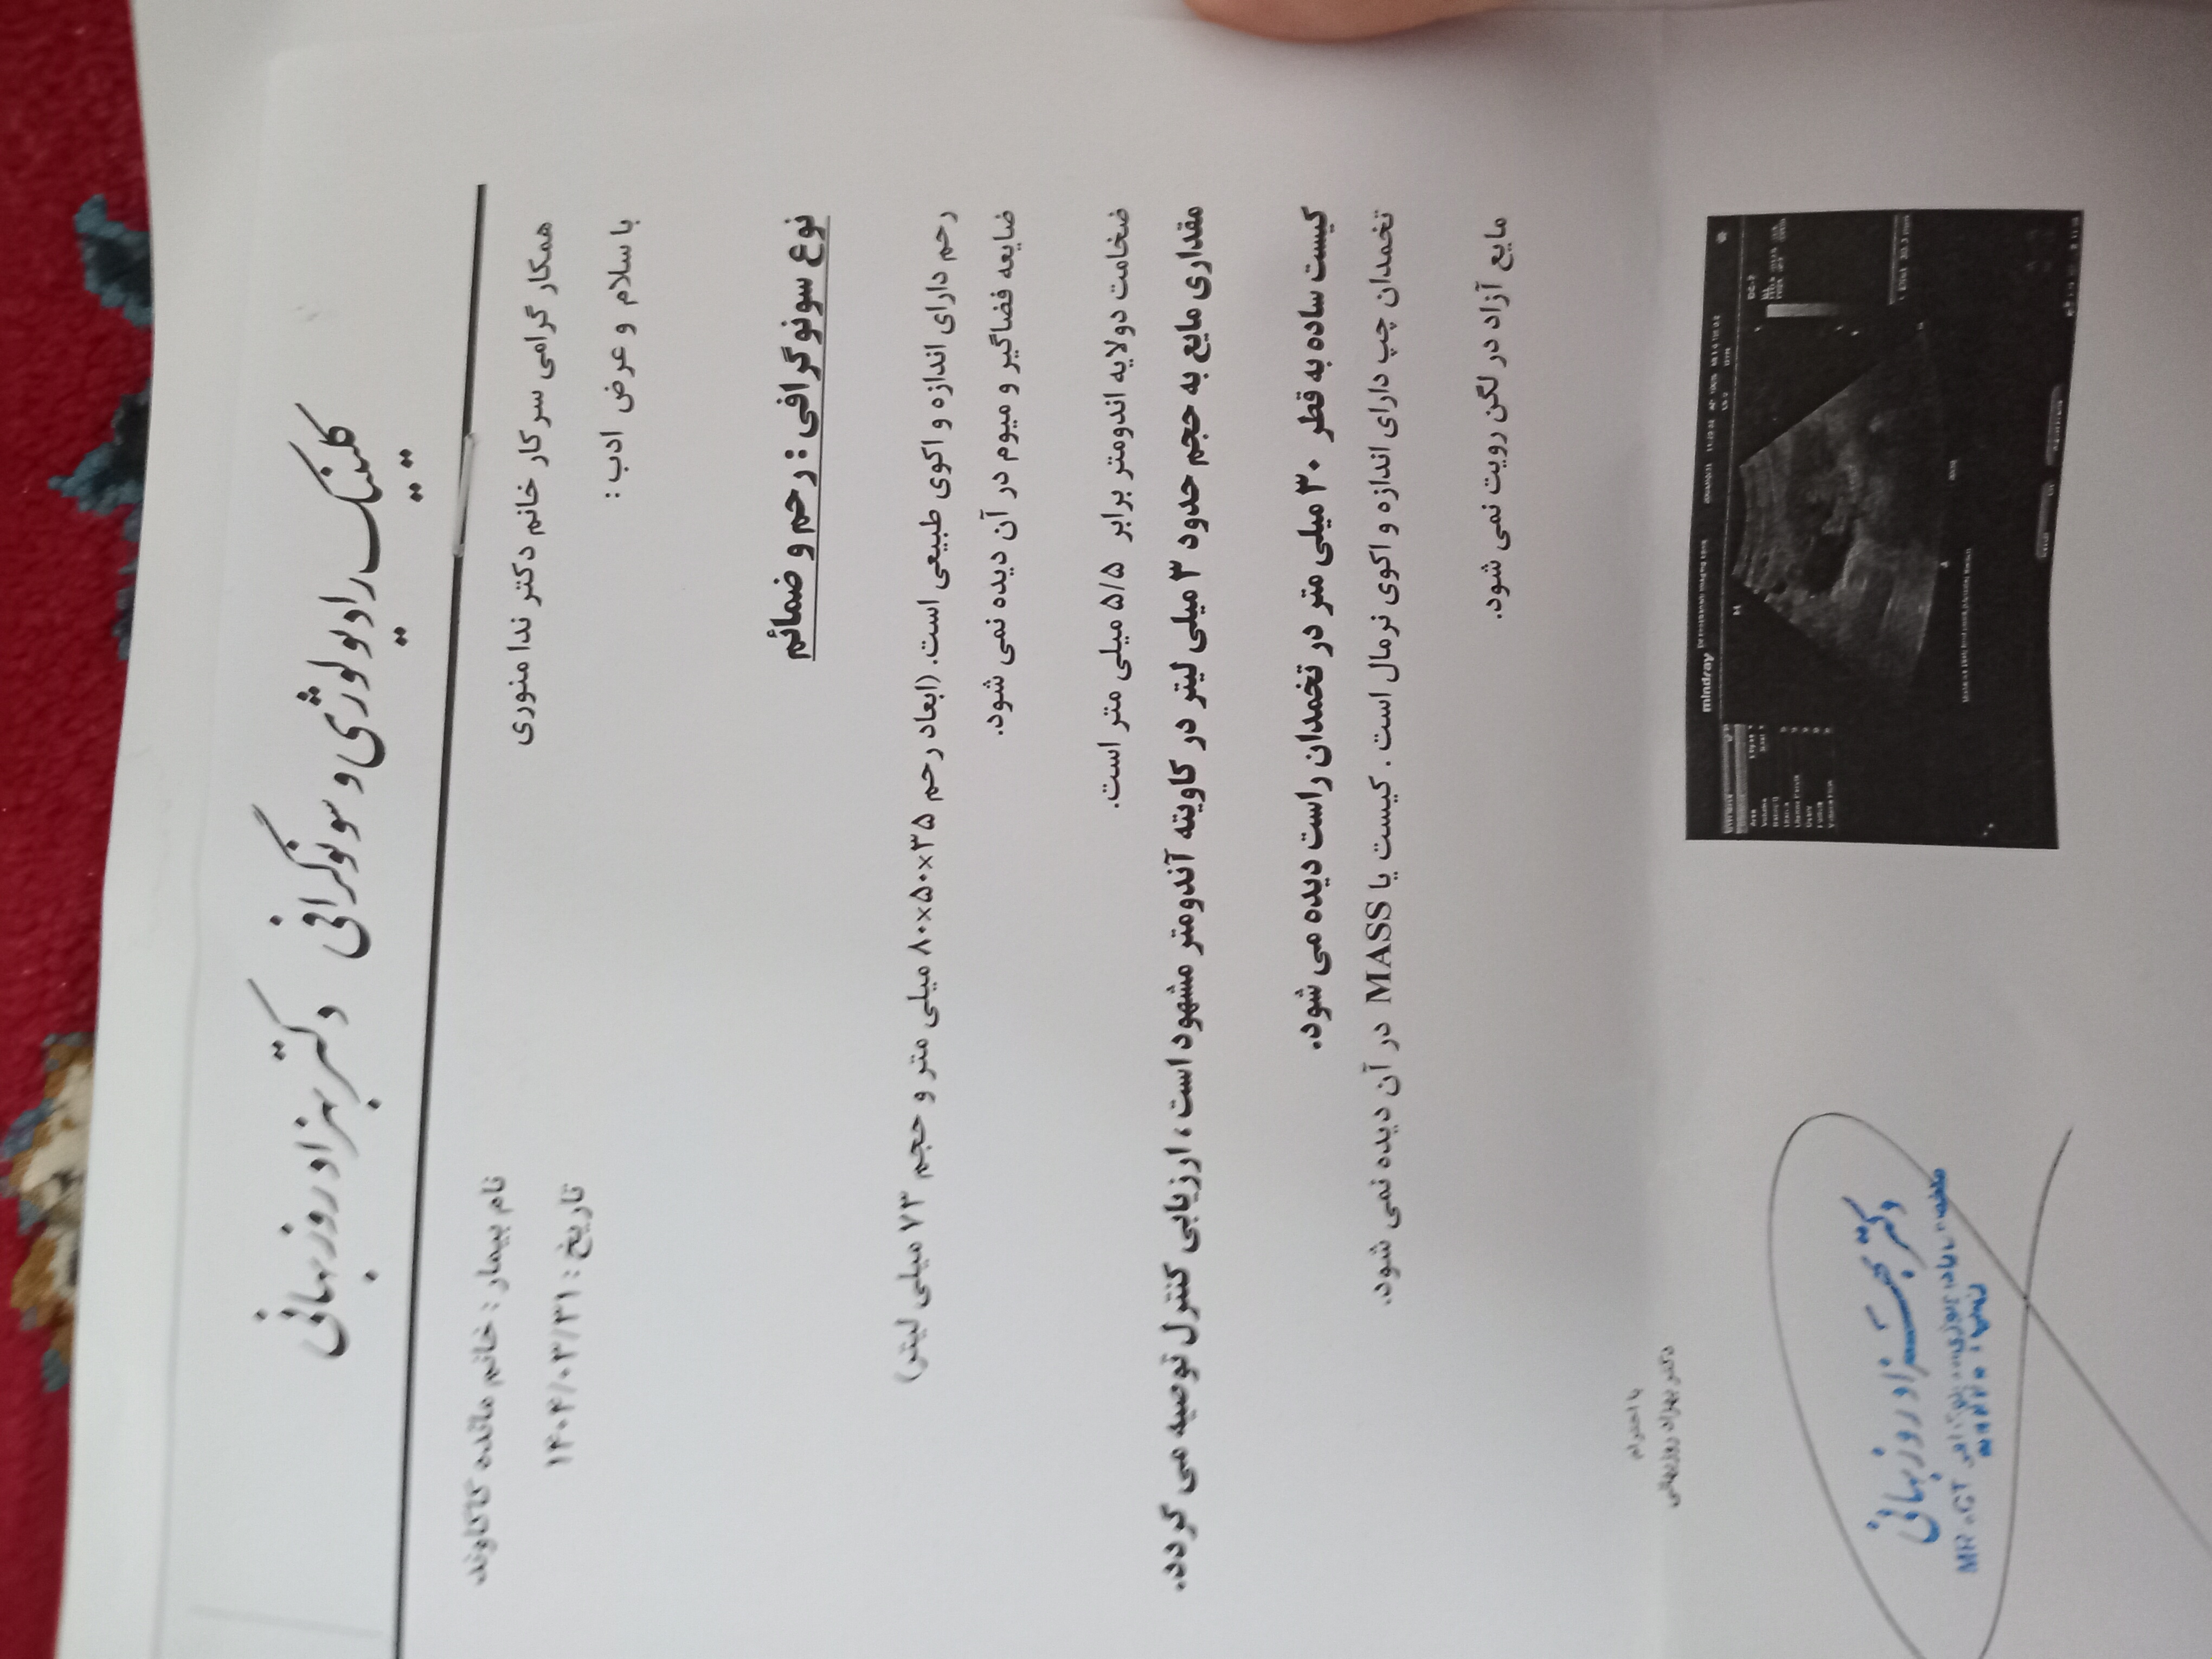 کلینیک رادیولوژی و سونوگرافی دکتر بهزاد روزبهانی
همکار گرامی سرکار خانم دکتر ندا منوری
نام بیمار : خانم مائده کاکاوند
با سلام و عرض ادب :
تاریخ : ۱۴۰۴/۰۳/۳۱
نوع سونوگرافی : رحم و ضمائم
رحم دارای اندازه و اکوی طبیعی است. (ابعاد رحم ۸۰×۵۰×۳۵ میلی متر و حجم ۷۳ میلی لیتر)
ضایعه فضاگیر و میوم در آن دیده نمی شود.
ضخامت دولایه اندومتر برابر ۵/۵ میلی متر است.
مقداری مایع به حجم حدود ۳ میلی لیتر در کاویته آندومتر مشهود است، ارزیابی کنترل توصیه می گردد.
کیست ساده به قطر ۳۰ میلی متر در تخمدان راست دیده می شود.
تخمدان چپ دارای اندازه و اکوی نرمال است . کیست یا MASS در آن دیده نمی شود.
مایع آزاد در لگن رویت نمی شود.
با احترام
دکتر بهزاد روزبهانی
mindray
دکتر بهزاد روزبهانی
MR .CT